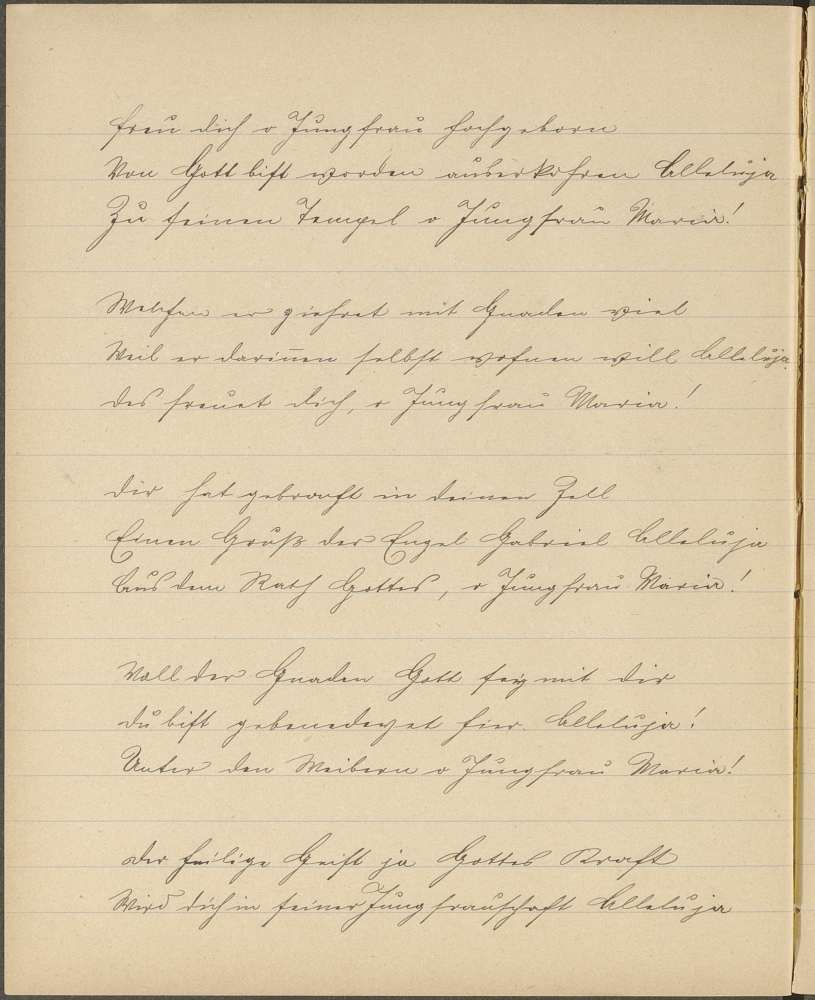 freu dich o Jungfrau hochgeborn
Von Gott bist worden auserkohren Alleluja
Zu seinen Tempel o Jungfrau Maria!
Welchen er ziehret mit Gnaden viel
Weil er darinen selbst wohnen will Alleluja
des freuet dich, o Jungfrau Maria!
dir hat gebracht in deinen Zell
Einen Gruß der Engel Gabriel Alleluja
Aus dem Rath Gottes, o Jungfrau Maria!
Voll der Gnaden Gott sey mit dir
du bist gebenedeyet hier. Alleluja!
Unter den Weibern o Jungfrau Maria!
der heilige Geist ja Gottes Kraft
Wird dich in seiner Jungfrauschaft Alleluja